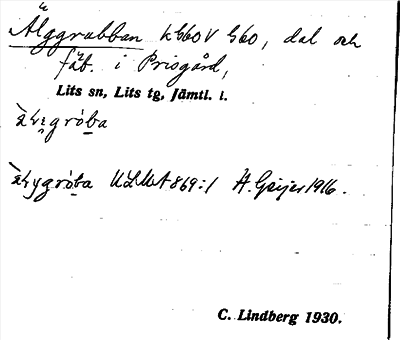 Älggrubban k 660 V 560, dal och
fäb. i Prisgård,
Lits sn, Lits tg, Jämtl. l.
gròba
gròba ULMA 869:1 H. Geijer 1916.
C. Lindberg 1930.